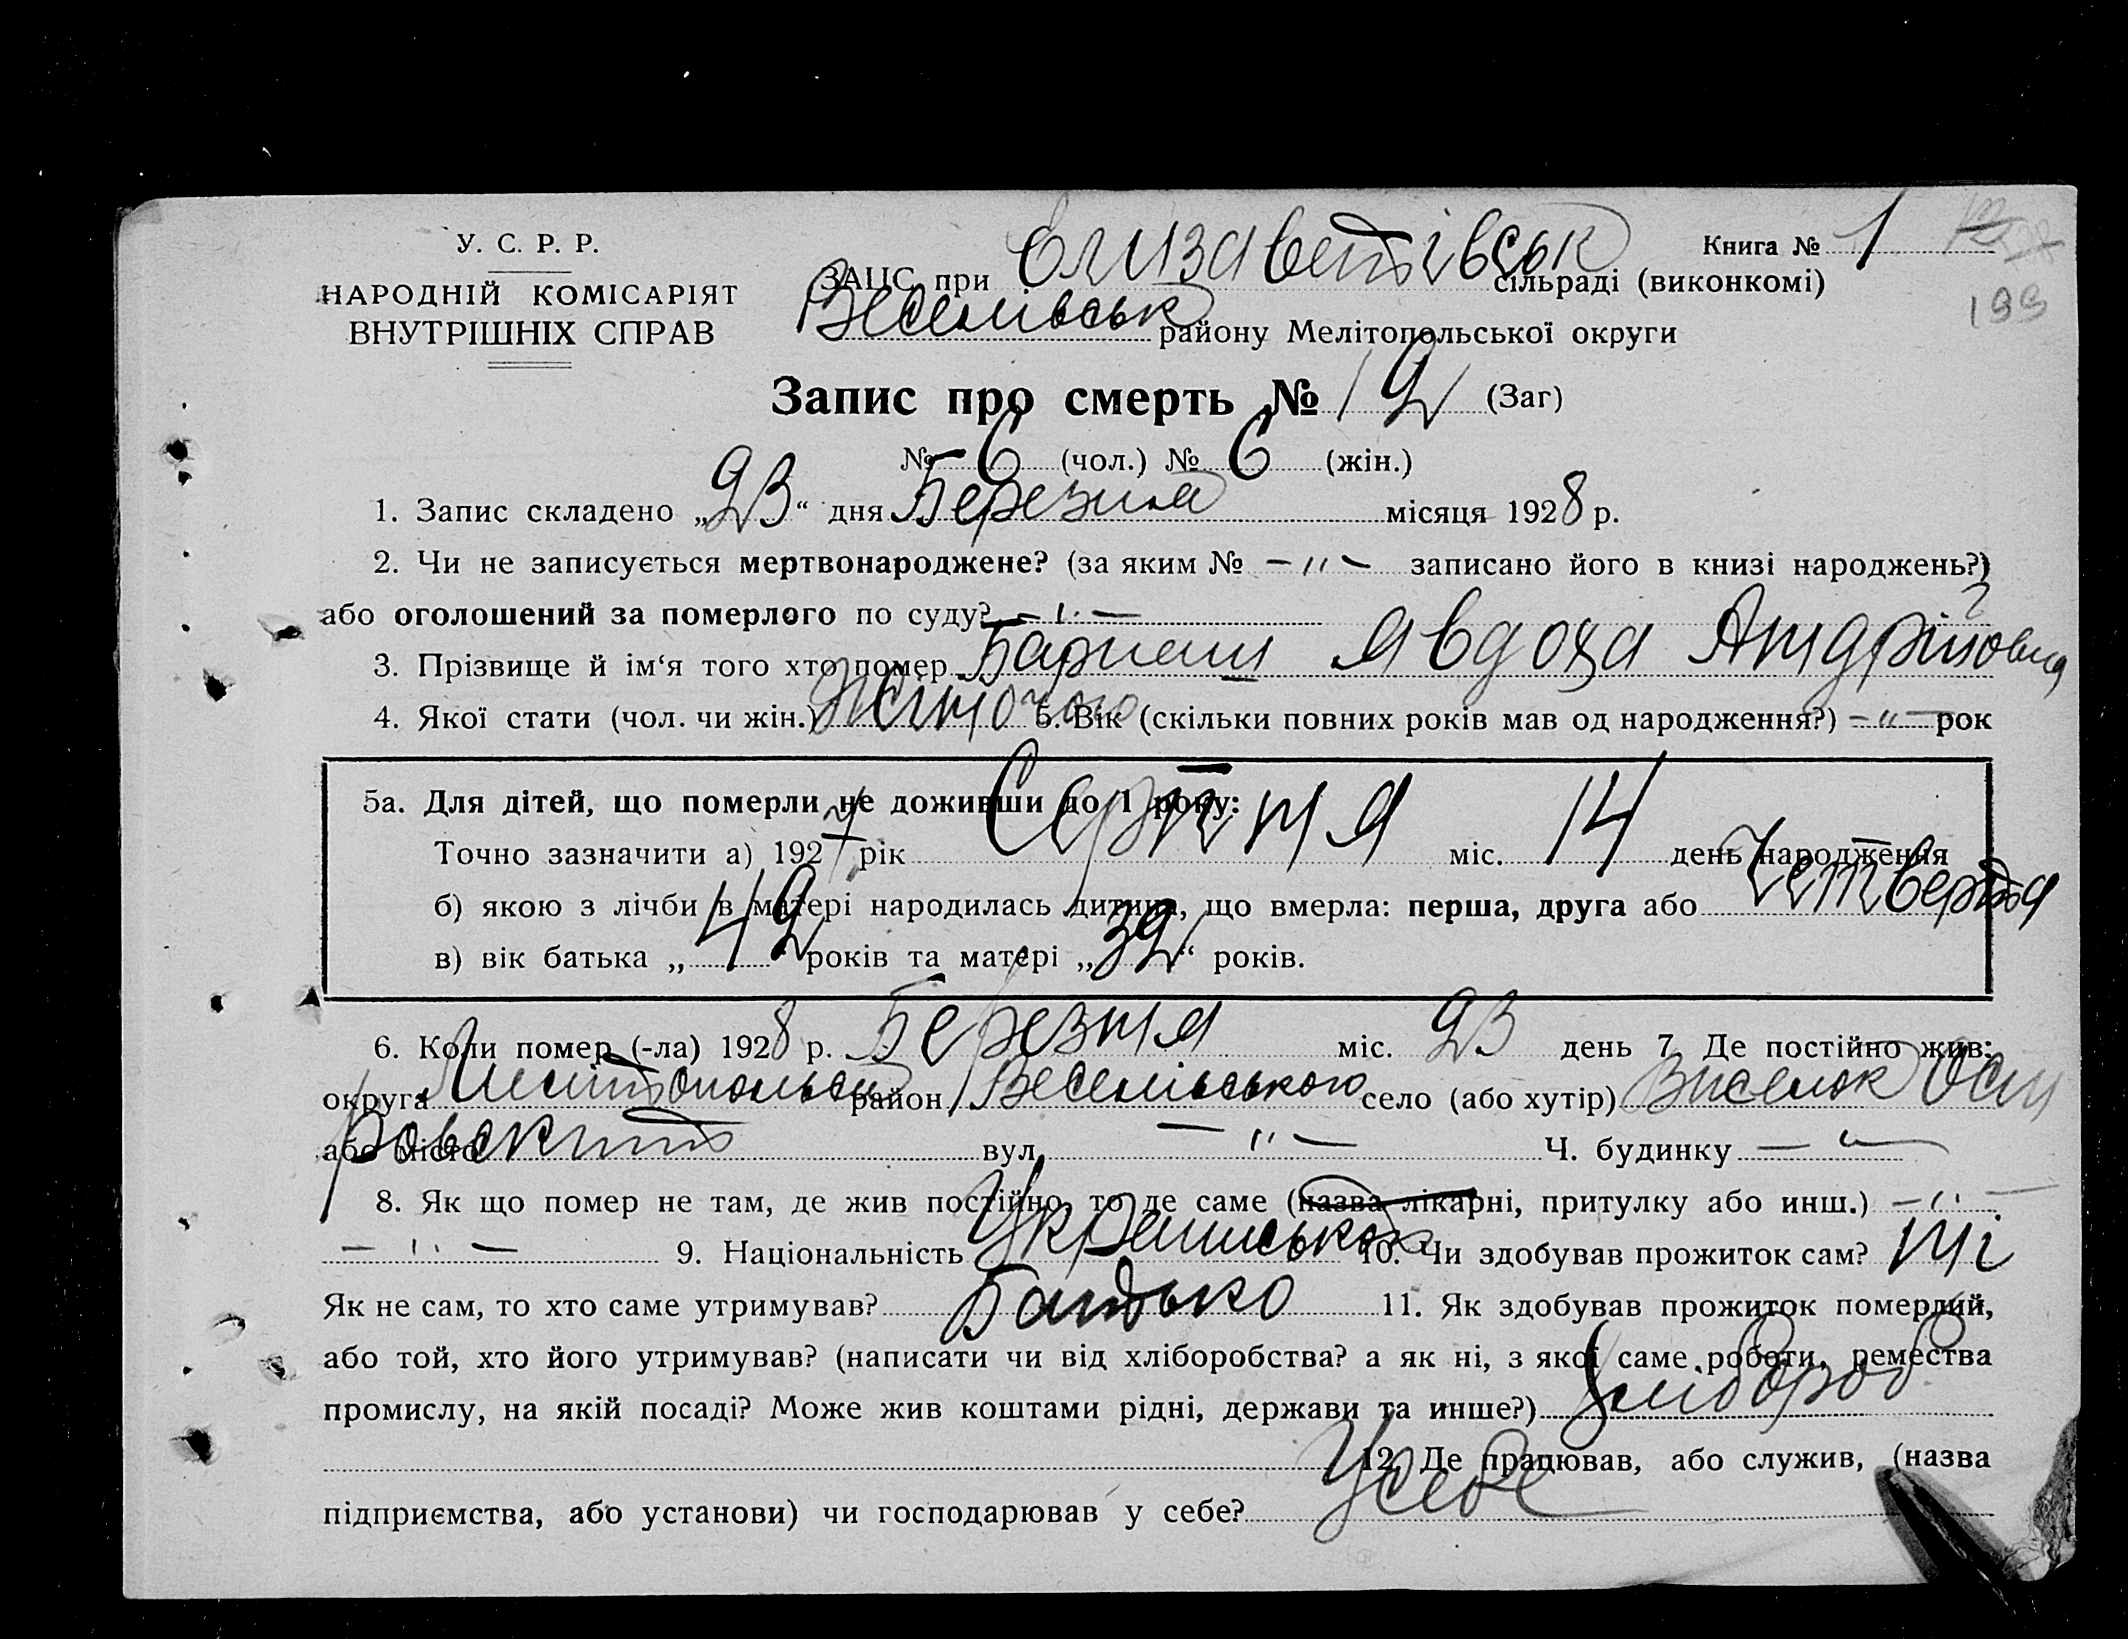 У. С. Р. Р.
НАРОДНІЙ КОМІСАРІЯТ
ВНУТРІШНІХ СПРАВ
Книга № 1
199
ЗАЦС при Єлизаветівськ сільраді (виконкомі)
Веселівськ району Мелітопольської округи
Запис про смерть № 12 (Заг)
№ 6 (чол.) № 6 (жін.)
1. Запис складено „23“ дня Березня місяця 1928 р.
2. Чи не записується мертвонароджене? (за яким № –〃– записано його в книзі народжень?)
або оголошений за померлого по суду? –〃–
3. Прізвище й ім‘я того хто помер Явдоха Андрійовна
4. Якої стати (чол. чи жін.) жіночого 5. Вік (скільки повних років мав од народження?) –〃– рок
5а. Для дітей, що померли не доживши до 1 року:
Точно зазначити а) 1927 рік Серпня міс. 14 день народження
б) якою з лічби в матері народилась дитина, що вмерла: перша, друга або Четверта
в) вік батька „42“ років та матері „32“ років.
6. Коли помер (-ла) 1928 р. Березня міс. 23 день 7. Де постійно жив:
округа Мелітопольськ район Веселівського село (або хутір) Виселок
або місто вул. –〃– Ч. будинку –〃–
8. Як що помер не там, де жив постійно, то де саме (назва лікарні, притулку або инш.) –〃–
–〃– 9. Національність Українська 10. Чи здобував прожиток сам? Ні
Як не сам, то хто саме утримував? Батько 11. Як здобував прожиток померлий,
або той, хто його утримував? (написати чи від хліборобства? а як ні, з якої саме роботи, ремества
промислу, на якій посаді? Може жив коштами рідні, держави та инше?) Хлібороб
12. Де працював, або служив, (назва
підприємства, або установи) чи господарював у себе? У себе